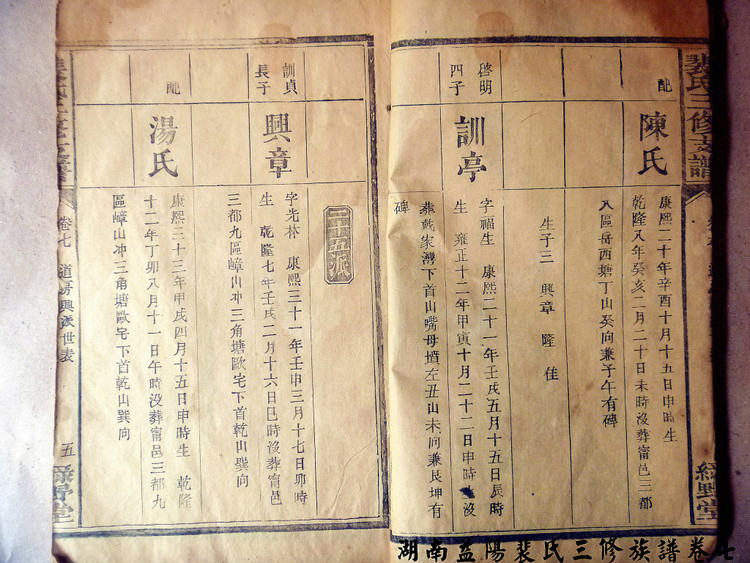 裴氏三修支譜
綠野堂
配
陳氏
康熙二十年辛酉十月十五日申時生
乾隆八年癸亥二月二十日未時沒葬甯邑三都
八區岳西塘丁山癸向兼子午有碑
生子三 興章 隆 佳
啓明
四子
訓亭
字福生 康熙二十一年壬戌五月十五日辰時
生 雍正十二年甲寅十月二十二日申時沒
葬戴家灣下首山嘴母墳左丑山未向兼艮坤有
碑
二十五派
訓貞
長子
興章
字先林 康熙三十一年壬申三月十七日卯時
生 乾隆七年壬戌二月十六日巳時沒葬甯邑
三都九區嶂山冲三角塘歐宅下首乾山巽向
配
湯氏
康熙三十三年甲戌四月十五日申時生 乾隆
十二年丁卯八月十一日午時沒葬甯邑三都九
區嶂山冲三角塘歐宅下首乾山巽向
卷七 道房興派世表
五
綠野堂
湖南益陽裴氏三修族譜卷七